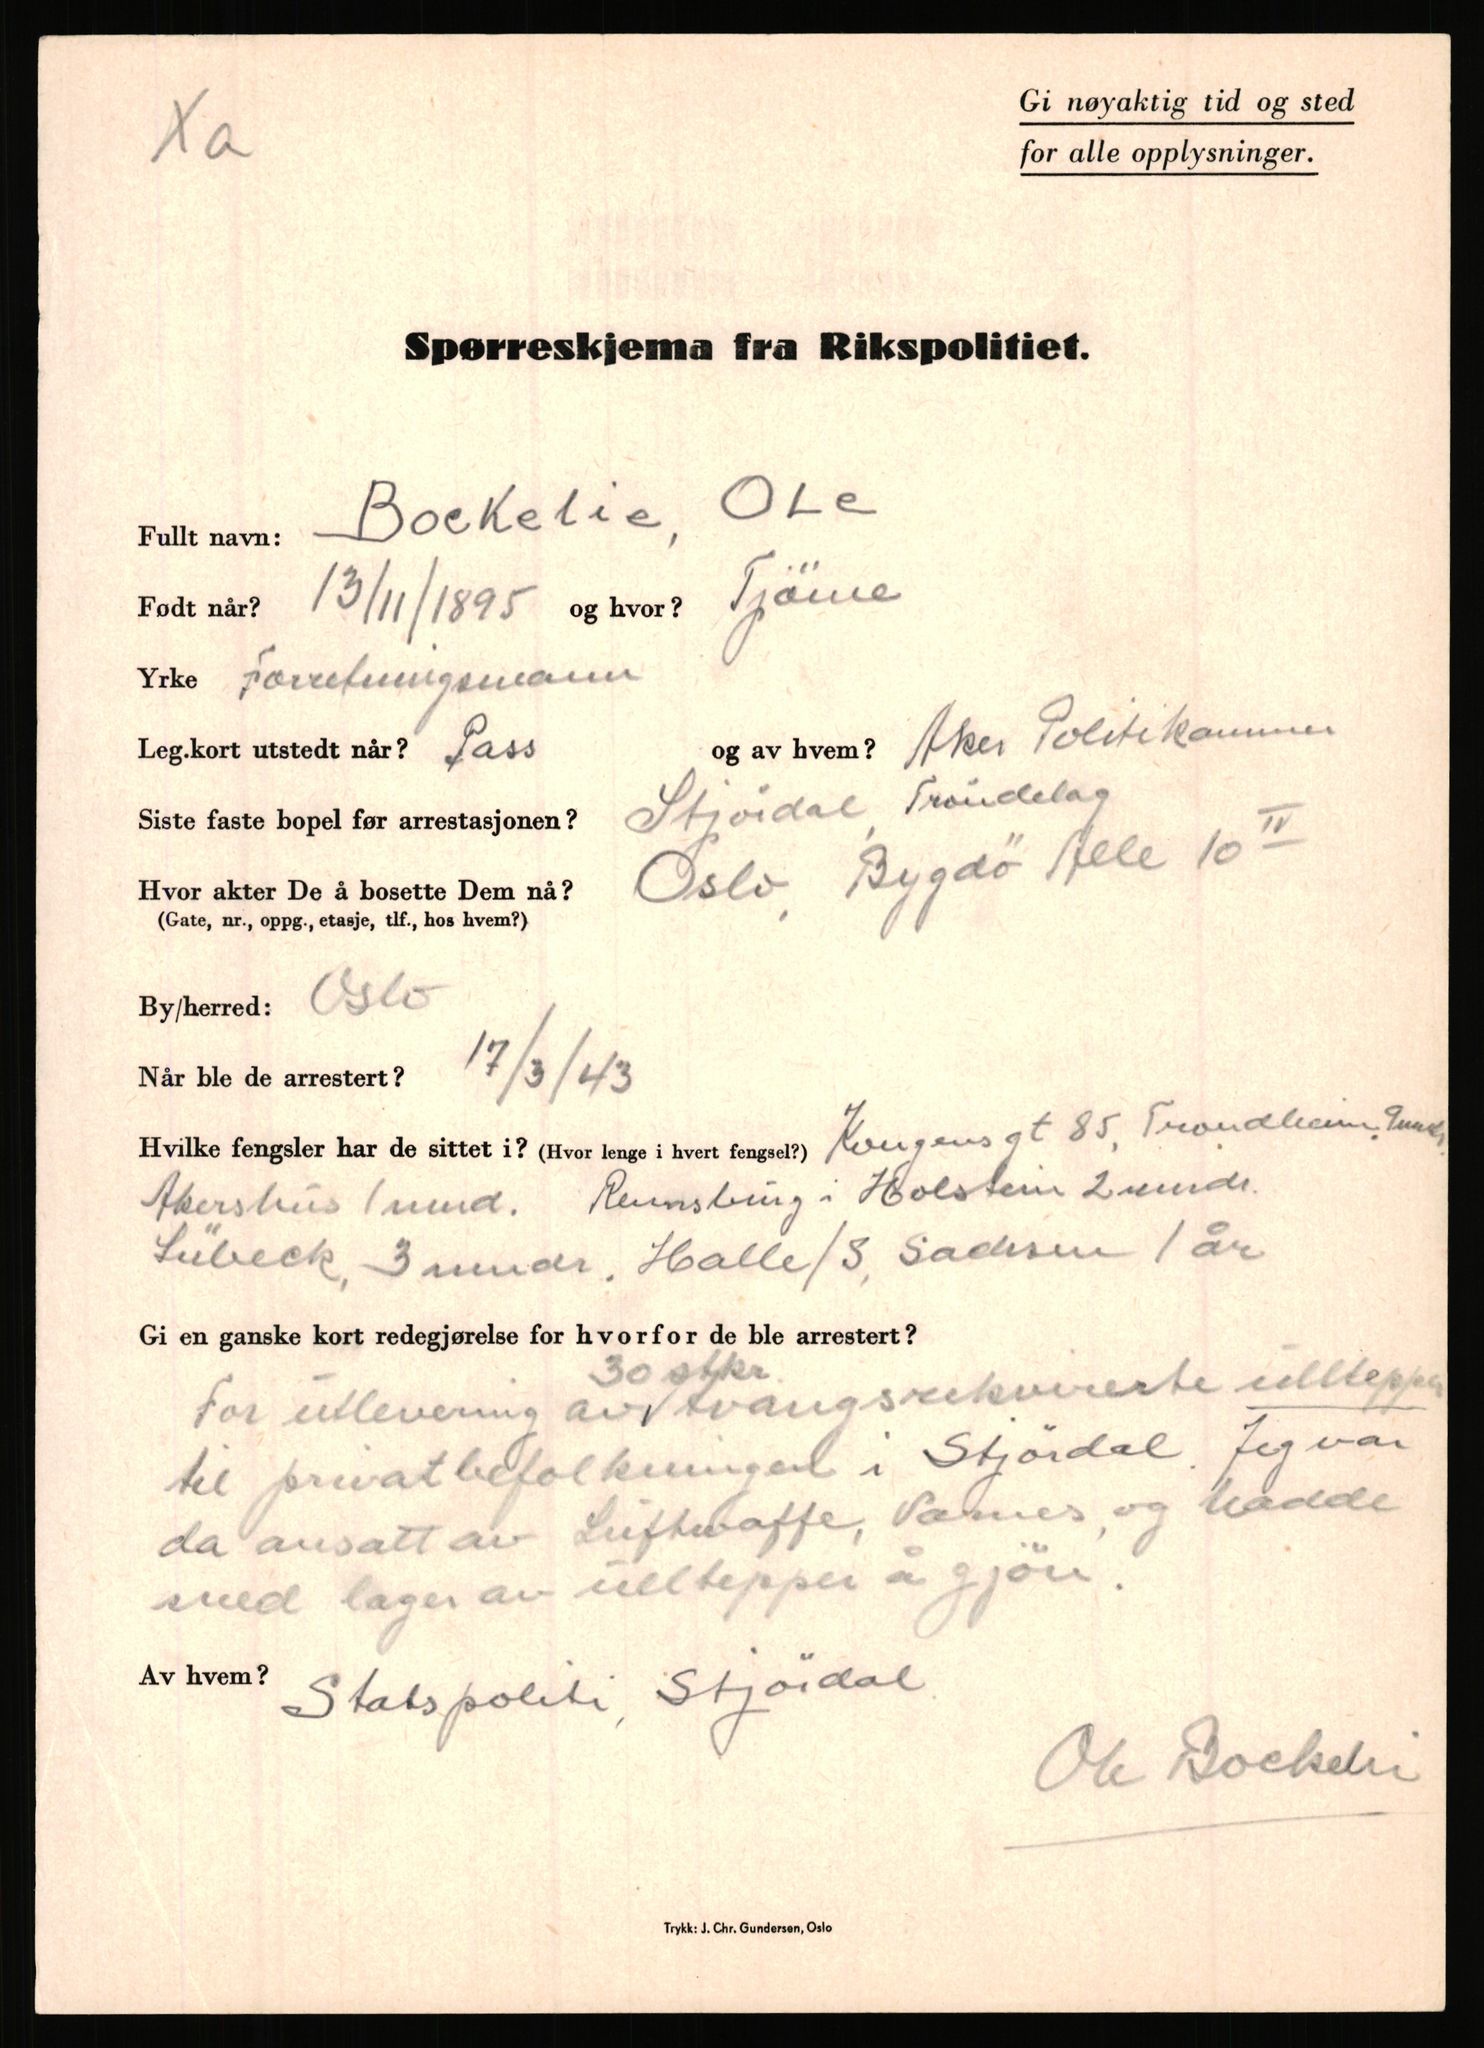 Xa
Gi nøyaktig tid og sted
for alle opplysninger.
Spørreskjema fra Rikspolitiet.
Fullt navn: Bockelie, Ole
Født når? 13/11/1895 og hvor? Tjöme
Yrke Forretningsmann
Leg.kort utstedt når? Pass og av hvem? Aker Politikammer
Siste faste bopel før arrestasjonen? Stjördal, Tröndelag
Hvor akter De å bosette Dem nå? Oslo, Bygdö Alle 10 IV
(Gate, nr., oppg., etasje, tlf., hos hvem?)
By/herred: Oslo
Når ble de arrestert? 17/3/43
Hvilke fengsler har de sittet i? (Hvor lenge i hvert fengsel?) Kongensgt 85, Trondheim,
Akershus 1 mnd. Rennsburg i Holstein 2 mndr.
Lübeck, 3 mndr. Halle/S, Sachsen 1 år
Gi en ganske kort redegjørelse for hvorfor de ble arrestert?
30 stkr
For utlevering av tvangsrekvirerte ulltepper
til privatbefolkningen i Stjördal. Jeg var
da ansatt av Luftwaffe, Værnes, og hadde
med lager av ulltepper å gjöre.
Av hvem? Statspoliti, Stjördal
Ole Bockelie
Trykk: J. Chr. Gundersen, Oslo